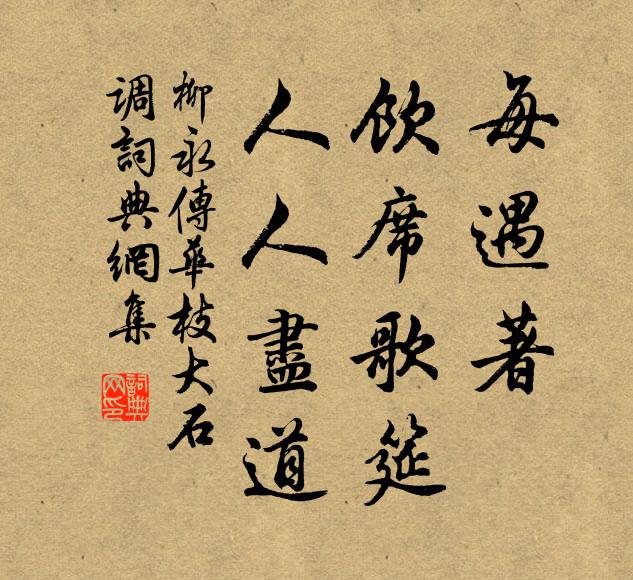 每遇著
飲席歌筵
人人盡道
柳永傳華枝大石
调詞典網集
詞典网印